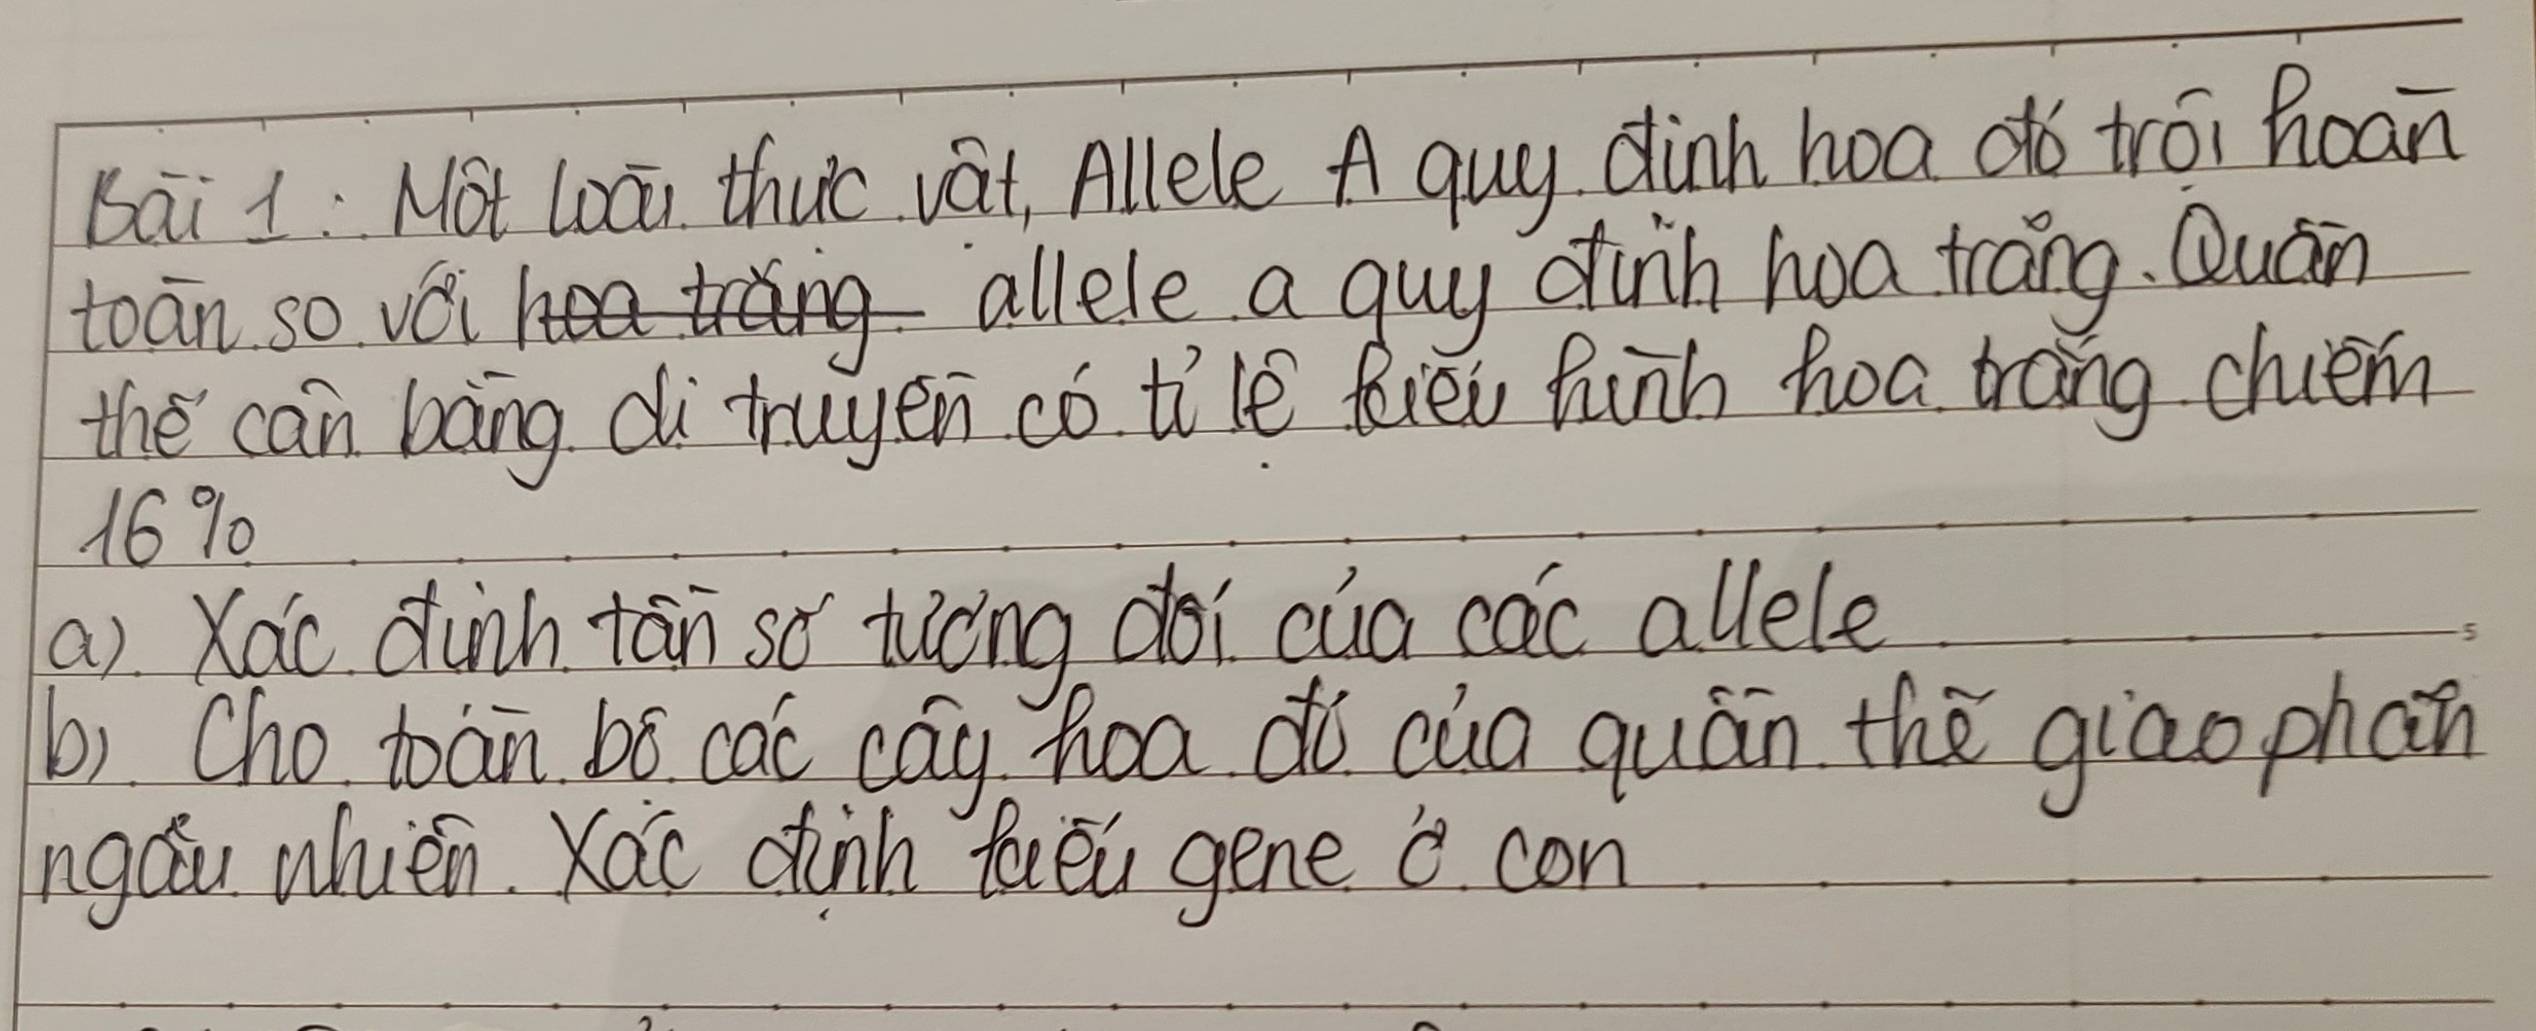 Bài 1: Một loài thực vật, Allele A quy định hoa đỏ trội hoàn
toàn so với hoa trắng allele a quy định hoa trắng. Quần
thể cân bằng di truyền có tỉ lệ kiểu hình hoa trắng chiếm
16%
a). Xác định tần số tương đối của các allele
b). Cho toàn bộ các cây hoa đỏ của quần thể giao phấn
ngẫu nhiên. Xác định kiểu gene ở con